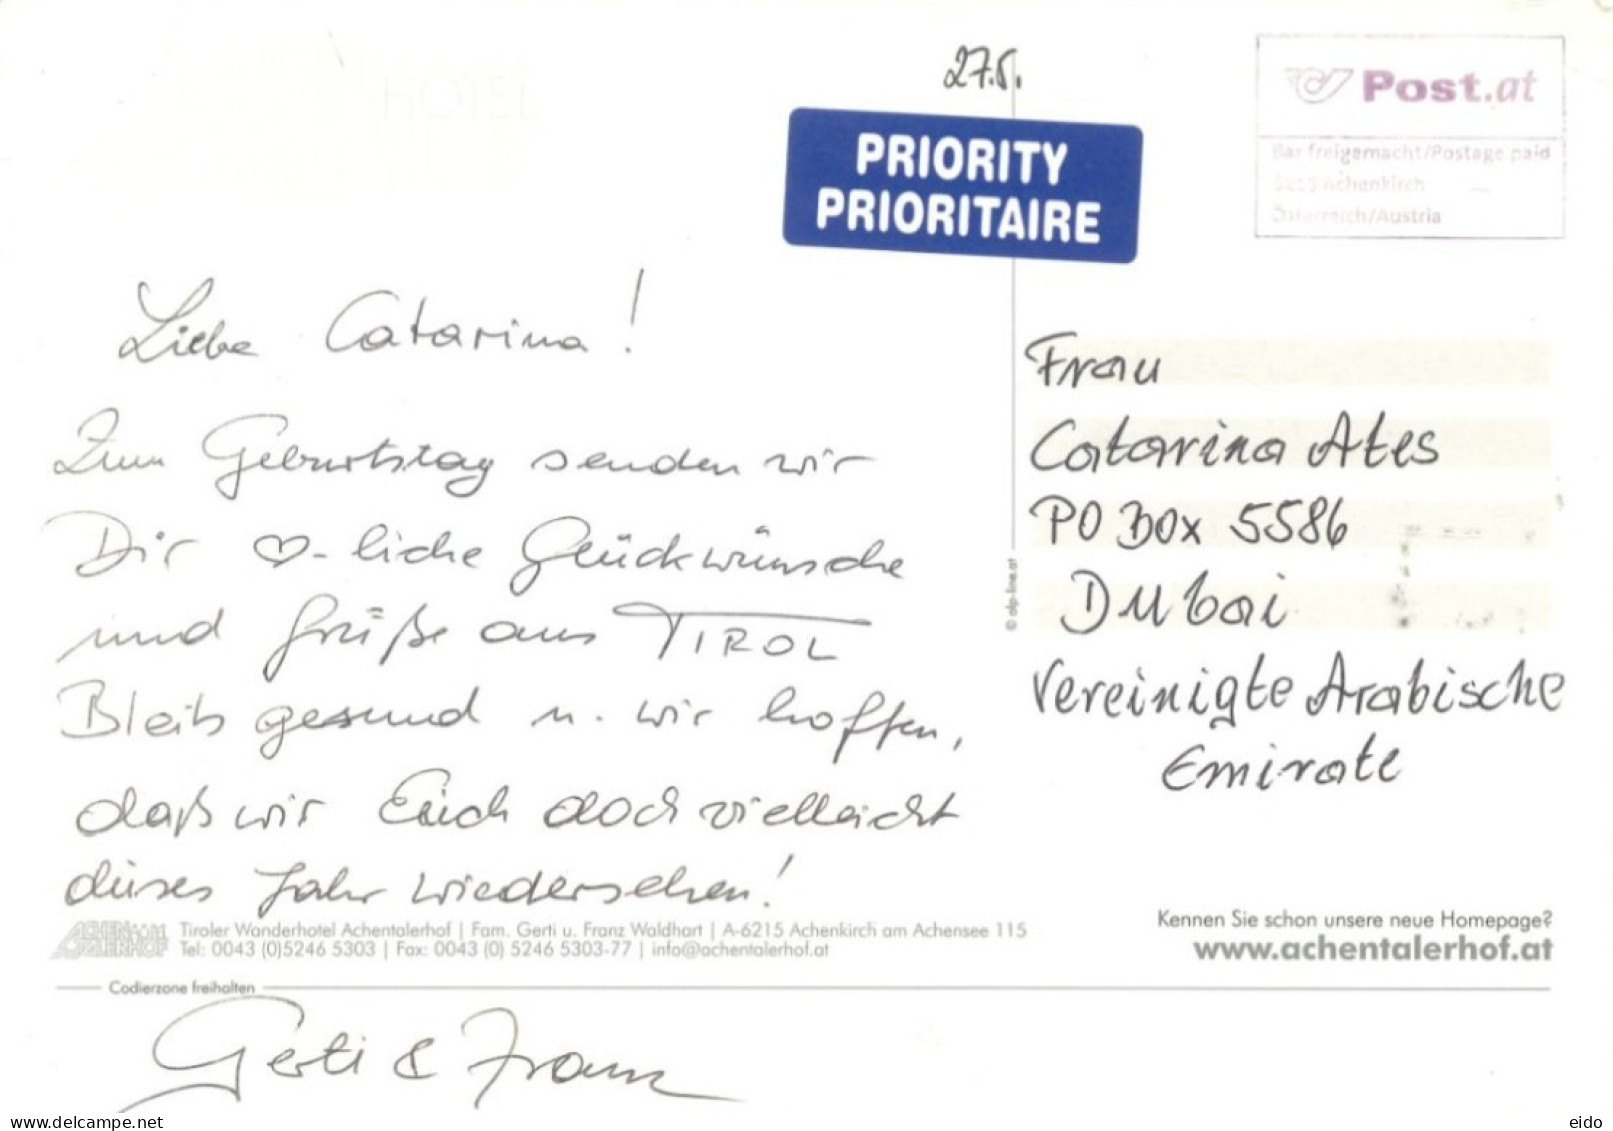 27.5.
Post.at
PRIORITY
PRIORITAIRE
Bar freigemacht/Postage paid
Achenkirch
Österreich/Austria
HOTEL
Liebe Catarina!
Zum Geburtstag senden wir
Dir ♡-liche Glückwünsche
und Grüße aus TIROL
Bleib gesund u. wir hoffen,
daß wir Euch doch vielleicht
dieses Jahr wiedersehen!
Gerti & Franz
Frau
Catarina Ates
PO Box 5586
Dubai
Vereinigte Arabische
Emirate
© alp-line.at
ACHENTALERHOF
Tiroler Wanderhotel Achentalerhof | Fam. Gerti u. Franz Waldhart | A-6215 Achenkirch am Achensee 115
Tel: 0043 (0)5246 5303 | Fax: 0043 (0) 5246 5303-77 | info@achentalerhof.at
Kennen Sie schon unsere neue Homepage?
www.achentalerhof.at
Codierzone freihalten
delcampe.net
eido